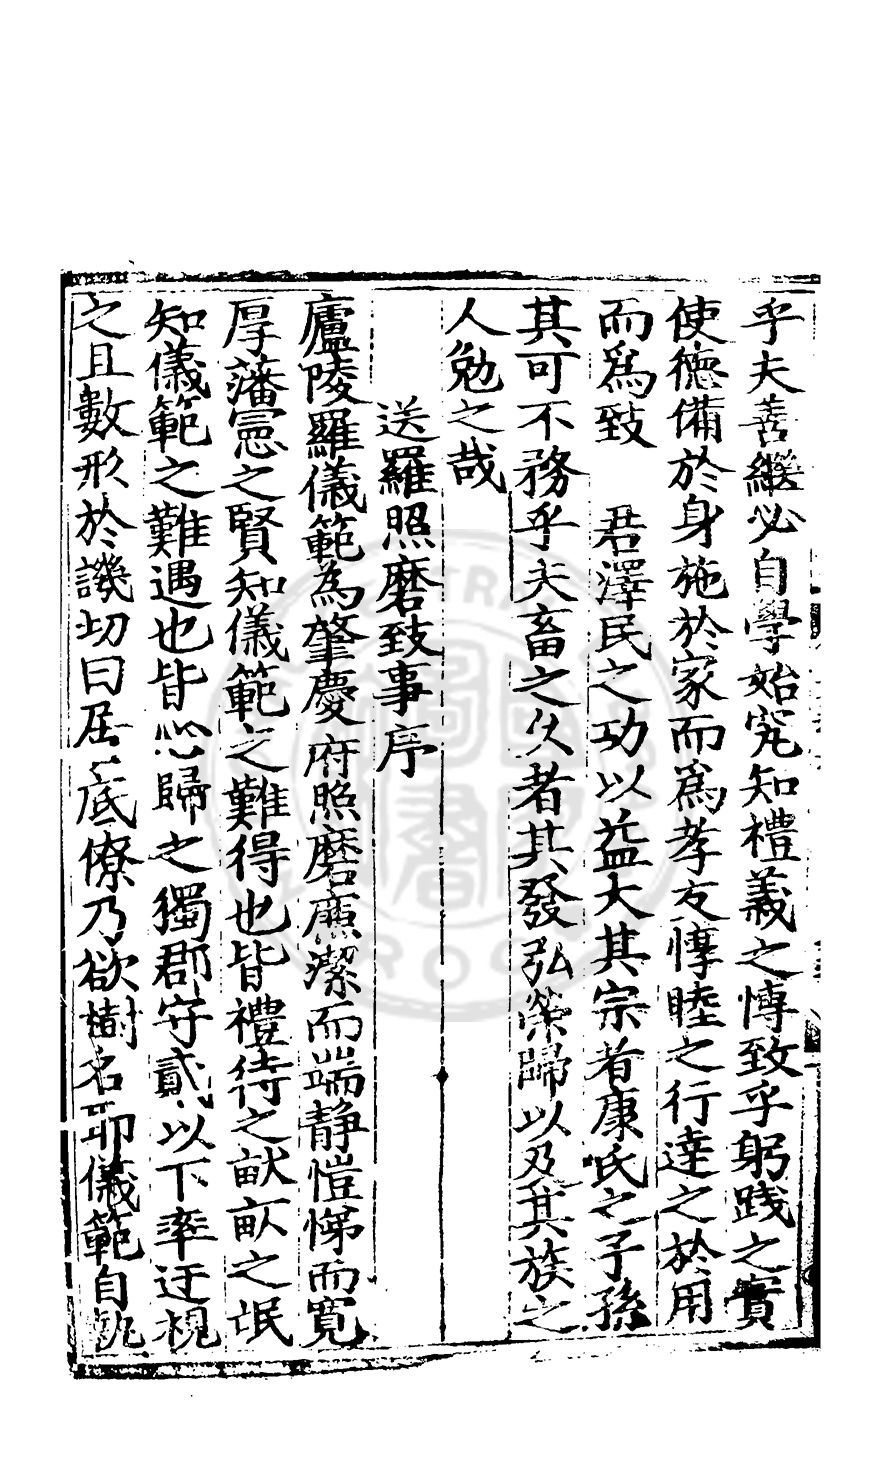 乎夫善繼必自學始究知禮義之慱致乎躬践之實
使徳備於身施於家而爲孝友惇睦之行達之於用
而爲致　君澤民之功以益大其宗者康氏之子孫
其可不務乎夫畜之久者其發弘榮歸以及其族之
人勉之哉
送羅照磨致事序
廬陵羅儀範為肇慶府照磨廉潔而端静愷悌而寛
厚藩憲之賢知儀範之難得也皆禮待之畎畝之氓
知儀範之難遇也皆心歸之獨郡守貳以下率迂視
之且數形於譏切曰居底僚乃欲樹名耶儀範自執